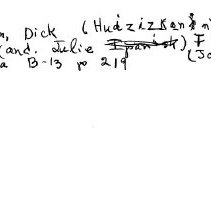 n, Dick (Hudzizkanin
(and. Julie Spanish) F
a B-13 p 219 (Jo